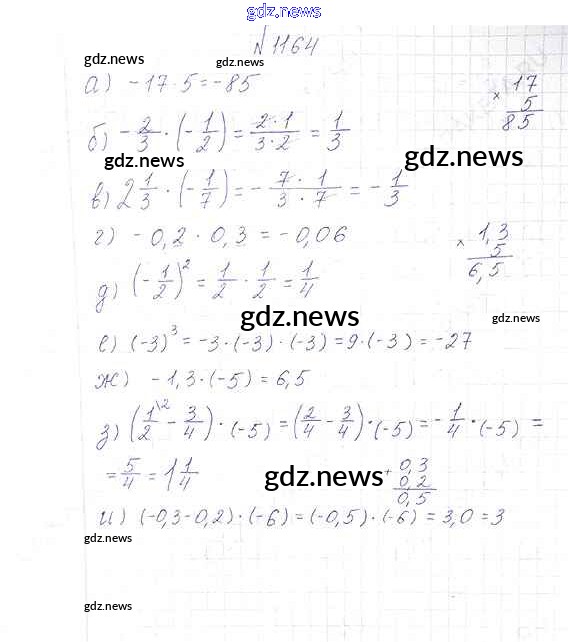 gdz.news
№ 1164
gdz.news
gdz.news
а) -17·5=-85
× 17
5
85
б) -2/3 · (-1/2) = 2·1/3·2 = 1/3
gdz.news
gdz.news
в) 2 1/3 · (-1/7) = - 7·1/3·7 = - 1/3
г) -0,2 · 0,3 = -0,06
× 1,3
5
6,5
д) (-1/2)² = 1/2 · 1/2 = 1/4
gdz.news
gdz.news
е) (-3)³ = -3·(-3)·(-3)=9·(-3)=-27
ж) -1,3·(-5)=6,5
з) (1\2/2 - 3/4)·(-5)=(2/4 - 3/4)·(-5)=-1/4·(-5) =
= 5/4 = 1 1/4
gdz.news
+ 0,3
0,2
0,5
и) (-0,3-0,2)·(-6)=(-0,5)·(-6)=3,0=3
gdz.news
gdz.news